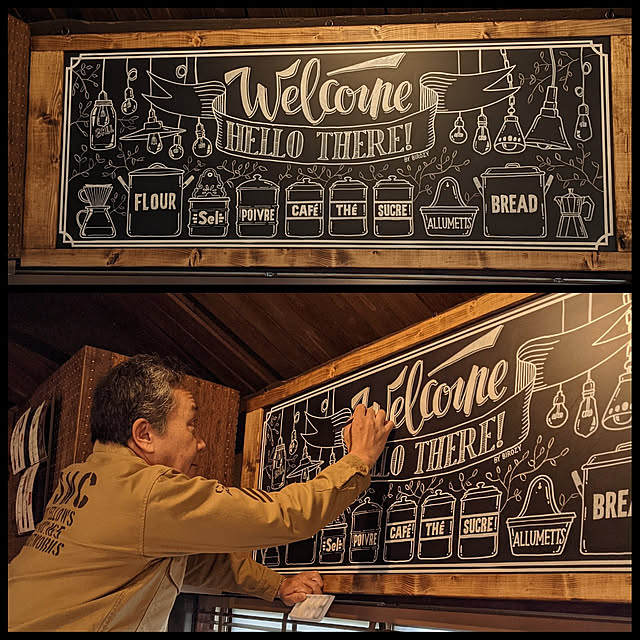 Welcome
HELLO THERE!
BY BIRDEY
Ball
FLOUR
Sel
POIVRE
CAFÉ
THÉ
SUCRE
ALLUMETTS
BREAD
Welcome
LO THERE!
Sel
POIVRE
CAFÉ
THÉ
SUCRE!
ALLUMETTS
BREA